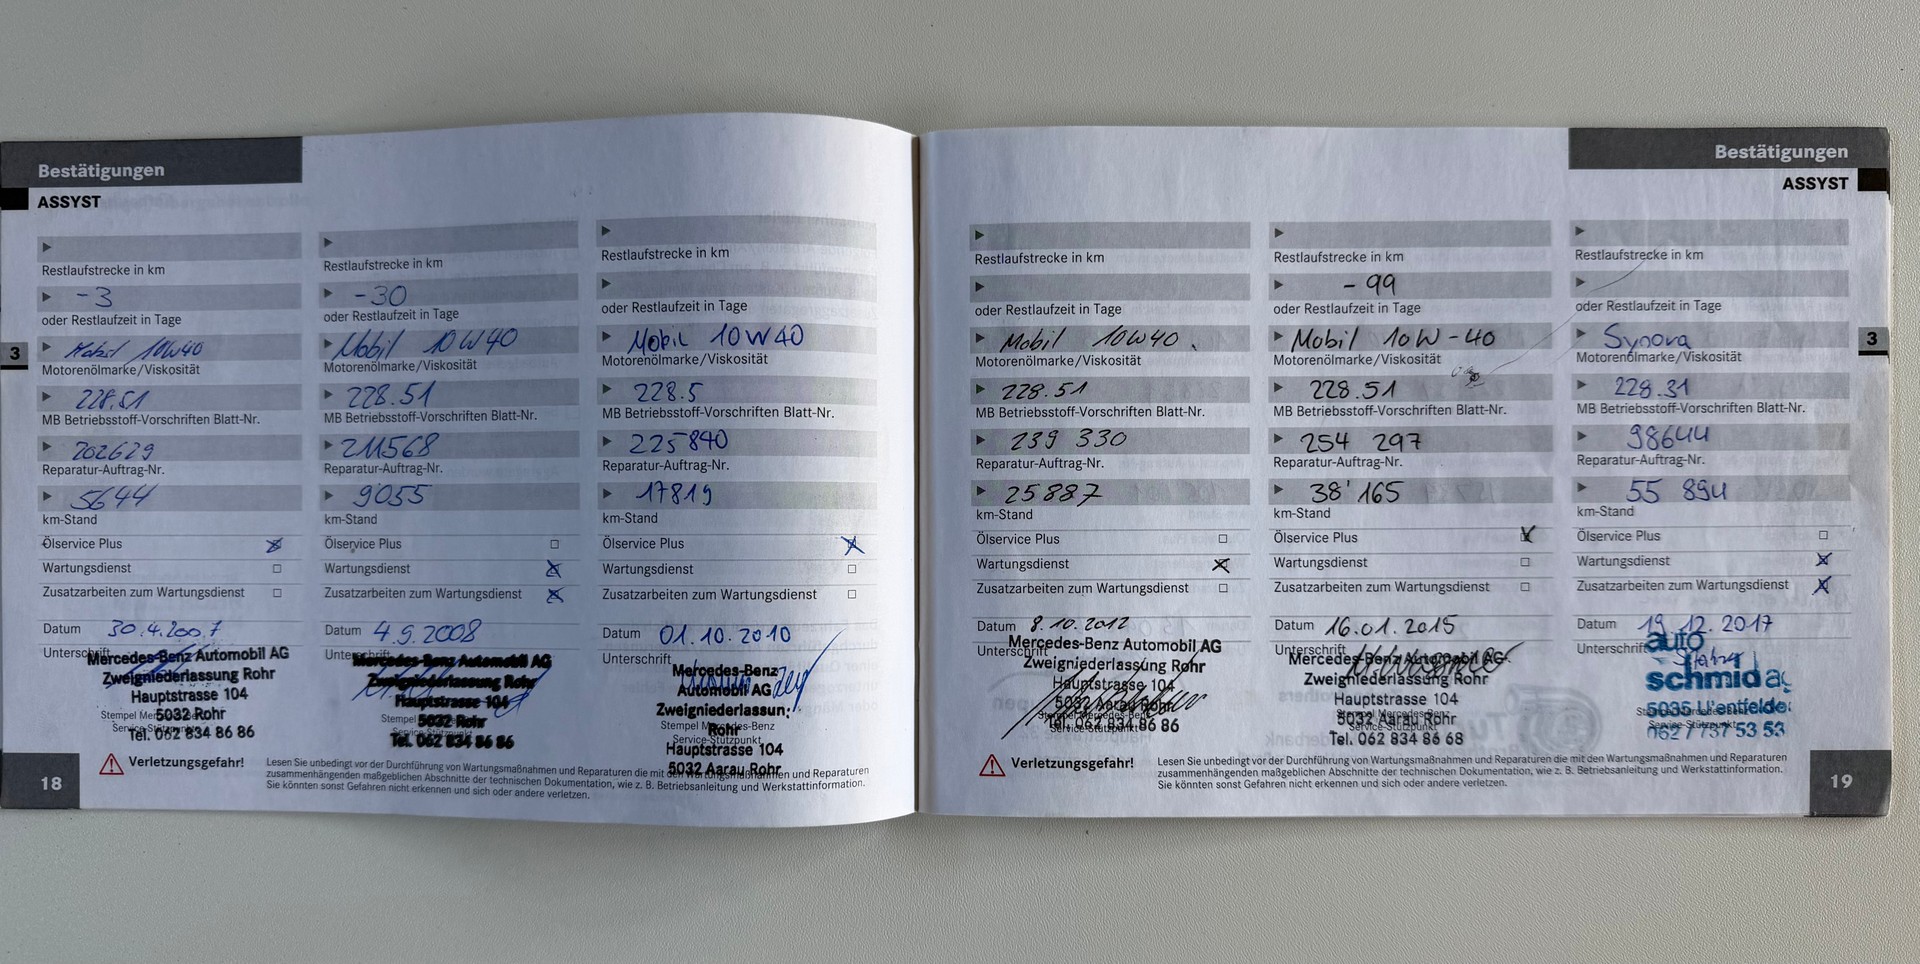 Bestätigungen
ASSYST
3
Restlaufstrecke in km
-3
oder Restlaufzeit in Tage
Mobil 10W40
Motorenölmarke/Viskosität
228.51
MB Betriebsstoff-Vorschriften Blatt-Nr.
202629
Reparatur-Auftrag-Nr.
5644
km-Stand
Ölservice Plus
Wartungsdienst
Zusatzarbeiten zum Wartungsdienst
Datum 30.4.2007
Unterschrift
Mercedes-Benz Automobil AG
Zweigniederlassung Rohr
Hauptstrasse 104
5032 Rohr
Tel. 062 834 86 86
Restlaufstrecke in km
-30
oder Restlaufzeit in Tage
Mobil 10W40
Motorenölmarke/Viskosität
228.51
MB Betriebsstoff-Vorschriften Blatt-Nr.
211568
Reparatur-Auftrag-Nr.
9055
km-Stand
Ölservice Plus
Wartungsdienst
Zusatzarbeiten zum Wartungsdienst
Datum 4.9.2008
Mercedes-Benz Automobil AG
Zweigniederlassung Rohr
Hauptstrasse 104
5032 Rohr
Tel. 062 834 86 86
Restlaufstrecke in km
oder Restlaufzeit in Tage
Mobil 10W40
Motorenölmarke/Viskosität
228.5
MB Betriebsstoff-Vorschriften Blatt-Nr.
225840
Reparatur-Auftrag-Nr.
17819
km-Stand
Ölservice Plus
Wartungsdienst
Zusatzarbeiten zum Wartungsdienst
Datum 01.10.2010
Unterschrift
Mercedes-Benz
Automobil AG
Zweigniederlassun
Rohr
Stempel Mercedes-Benz
Service-Stützpunkt
Hauptstrasse 104
5032 Aarau Rohr
Verletzungsgefahr!
Lesen Sie unbedingt vor der Durchführung von Wartungsmaßnahmen und Reparaturen die mit den Wartungsmaßnahmen und Reparaturen
zusammenhängenden maßgeblichen Abschnitte der technischen Dokumentation, wie z. B. Betriebsanleitung und Werkstattinformation.
Sie könnten sonst Gefahren nicht erkennen und sich oder andere verletzen.
18
Bestätigungen
ASSYST
3
Restlaufstrecke in km
oder Restlaufzeit in Tage
Mobil 10W40.
Motorenölmarke/Viskosität
228.51
MB Betriebsstoff-Vorschriften Blatt-Nr.
239 330
Reparatur-Auftrag-Nr.
25887
km-Stand
Ölservice Plus
Wartungsdienst
Zusatzarbeiten zum Wartungsdienst
Datum 8.10.2012
Unterschrift
Mercedes-Benz Automobil AG
Zweigniederlassung Rohr
Hauptstrasse 104
5032 Aarau Rohr
Tel. 062 834 86 86
Restlaufstrecke in km
-99
oder Restlaufzeit in Tage
Mobil 10W-40
Motorenölmarke/Viskosität
228.51
MB Betriebsstoff-Vorschriften Blatt-Nr.
254 297
Reparatur-Auftrag-Nr.
38'165
km-Stand
Ölservice Plus
Wartungsdienst
Zusatzarbeiten zum Wartungsdienst
Datum 16.01.2015
Unterschrift
Mercedes-Benz Automobil AG
Zweigniederlassung Rohr
Hauptstrasse 104
5032 Aarau Rohr
Tel. 062 834 86 68
Restlaufstrecke in km
oder Restlaufzeit in Tage
Synova
Motorenölmarke/Viskosität
229.31
MB Betriebsstoff-Vorschriften Blatt-Nr.
98644
Reparatur-Auftrag-Nr.
55 894
km-Stand
Ölservice Plus
Wartungsdienst
Zusatzarbeiten zum Wartungsdienst
Datum 19.12.2017
Unterschrift
auto
schmid ag
5035 U'entfelde
062 / 737 53 53
Verletzungsgefahr!
Lesen Sie unbedingt vor der Durchführung von Wartungsmaßnahmen und Reparaturen die mit den Wartungsmaßnahmen und Reparaturen
zusammenhängenden maßgeblichen Abschnitte der technischen Dokumentation, wie z. B. Betriebsanleitung und Werkstattinformation.
Sie könnten sonst Gefahren nicht erkennen und sich oder andere verletzen.
19